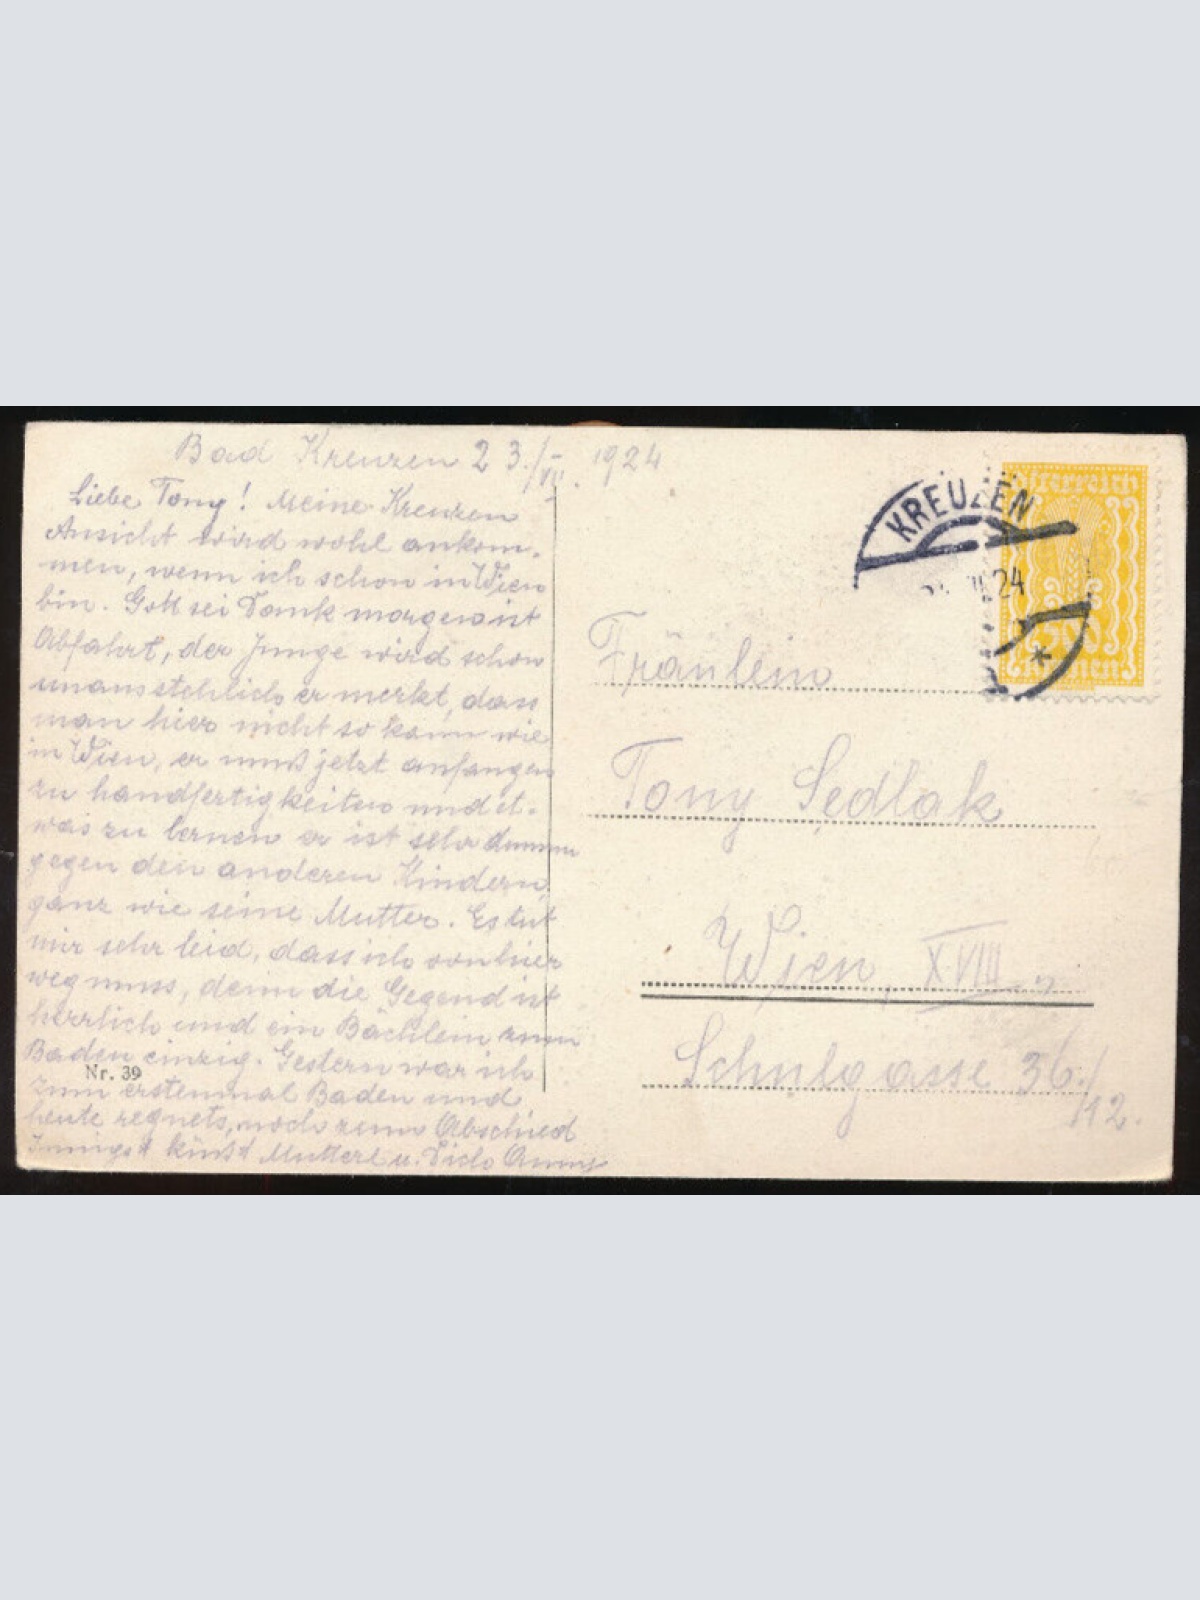 Bad Kreuzen 23./VII. 1924
Liebe Tony! Meine Kreuzen
Ansicht wird wohl ankom-
men, wenn ich schon in Wien
bin. Gott sei Dank morgen ist
Abfahrt, der Junge wird schon
unausstehlich er merkt, dass
man hier nicht so kann wie
in Wien, er muß jetzt anfangen
zu handfertigkeiten und et-
was zu lernen er ist sehr dumm
gegen den anderen Kindern,
ganz wie seine Mutter. Es tut
mir sehr leid, dass ich von hier
weg muss, denn die Gegend ist
herrlich und ein Bächlein zum
Baden einzig. Gestern war ich
zum erstenmal Baden und
heute regnets, noch zum Abschied
Innigst küßt Mutterl u. Dich Anny
Nr. 39
KREUZEN
VII 24
*
Österreich
500
Kronen
Fräulein
Tony Sedlak
Wien, XVIII
Schulgasse 36./
12.